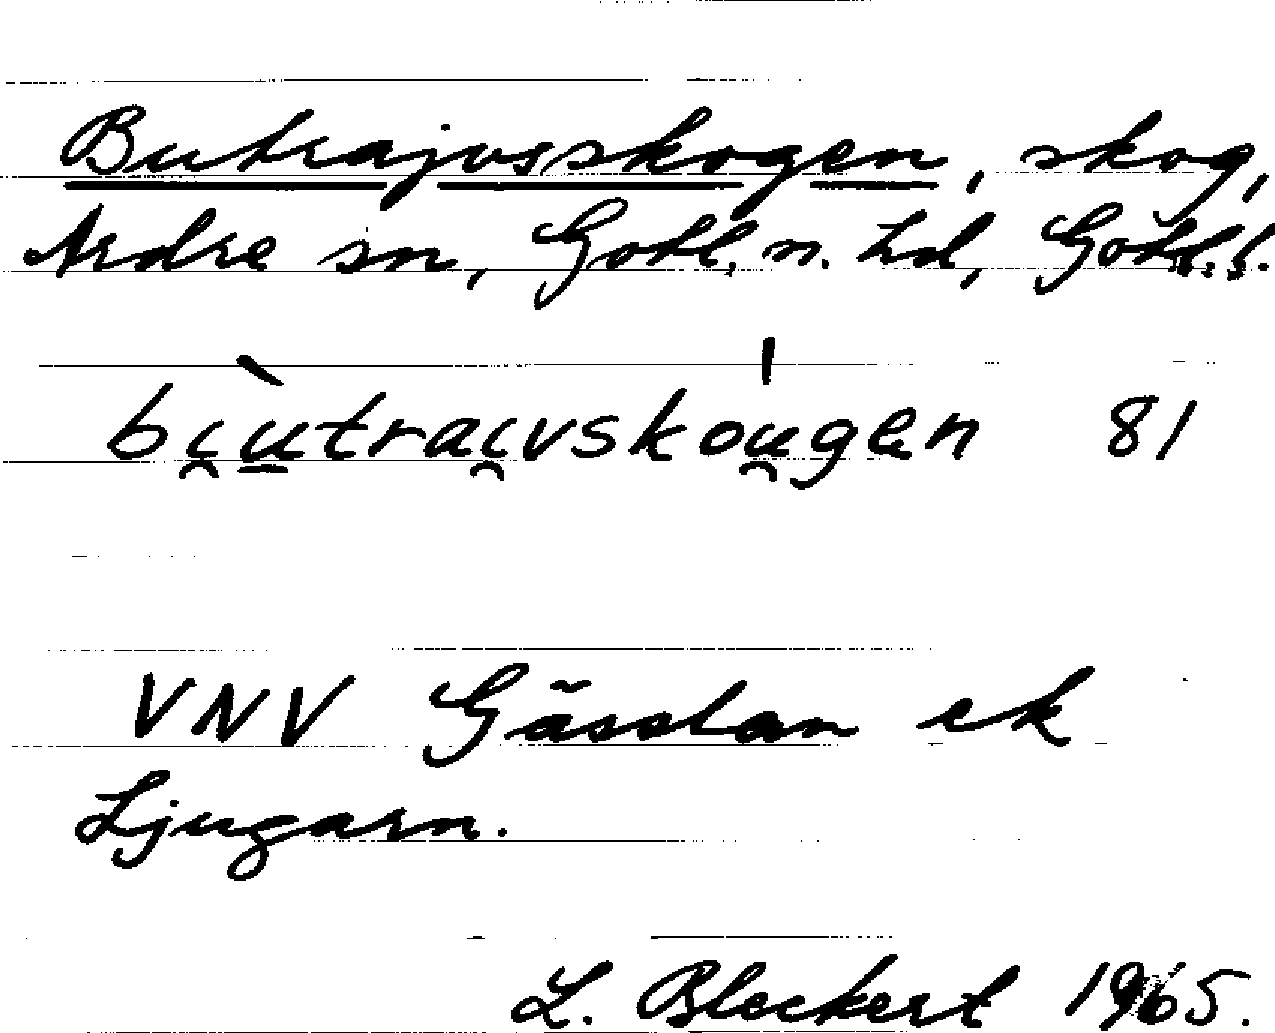 Butrajvsskogen, skog,
Ardre sn, Gotl. n. hd, Gotl. l.
bi̯ùtrai̯vskóu̯gen 81
VNV Gässlan ek
Ljugarn.
L. Bleckert 1965.